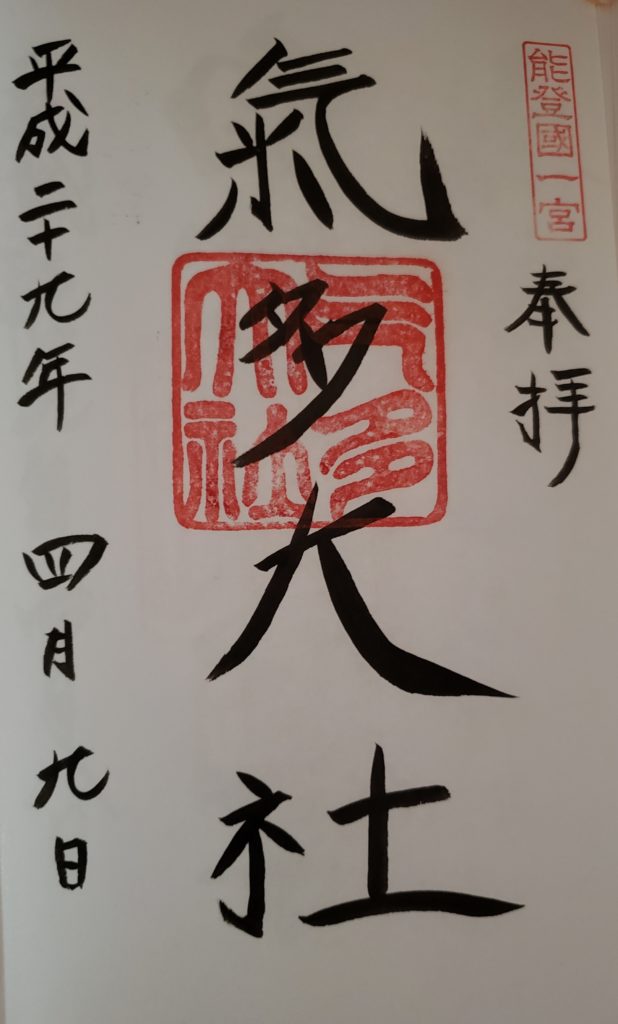 能登國一宮
奉拝
氣多大社
气多大社
平成二十九年 四月 九日